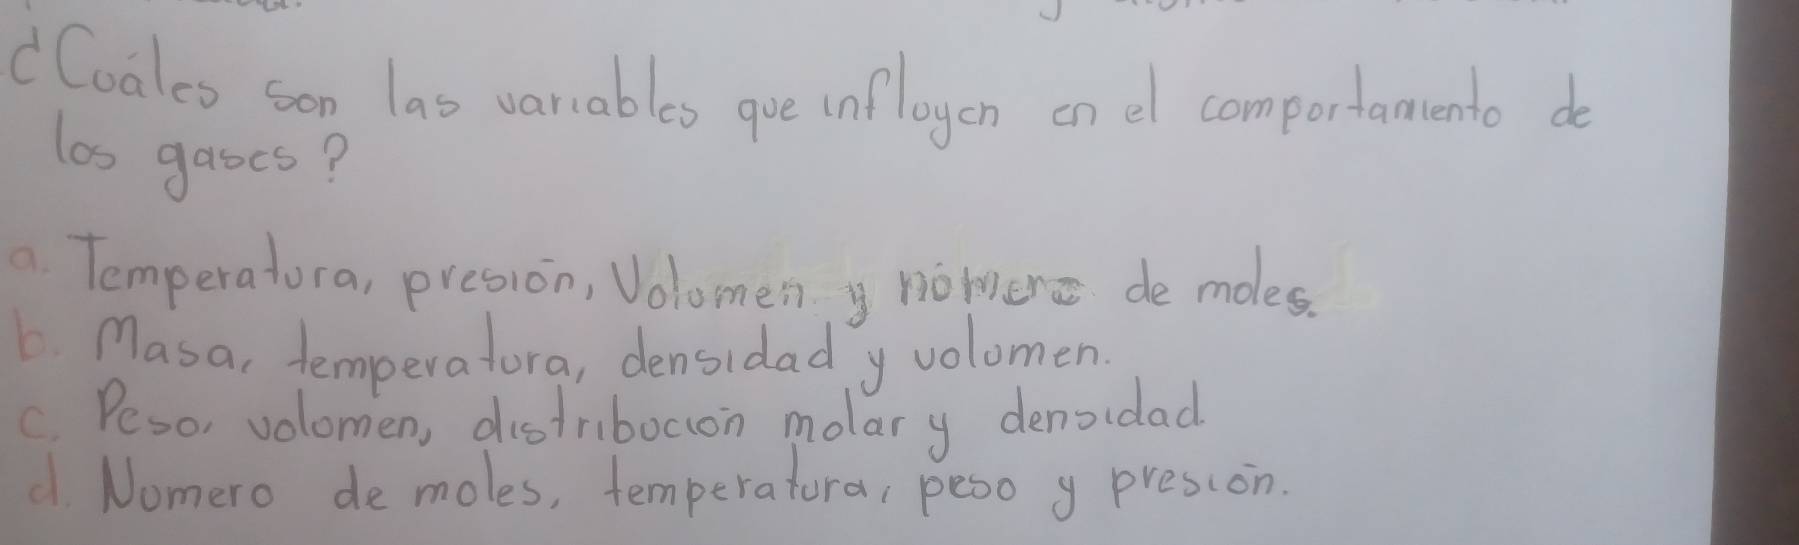 ¿Cuáles son las variables que influyen en el comportamiento de
los gases?
a. Temperatura, presión, Volumen y número de moles.
b. Masa, temperatura, densidad y volumen.
c. Peso, volumen, distribución molar y densidad.
d. Numero de moles, temperatura, peso y presión.